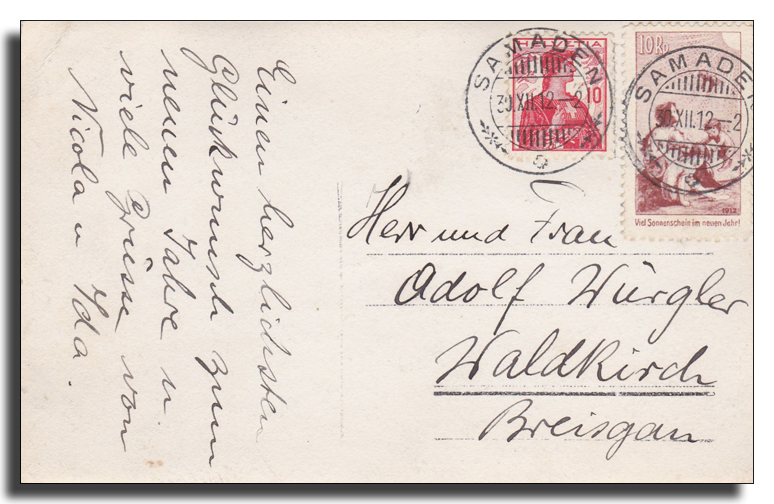 Einen herzlichsten
Glückwunsch zum
neuen Jahre u.
viele Grüsse von
Nicola u Ida.
HELVETIA
10
SAMADEN
30.XII.12.-2
10 Rp
SAMADEN
30.XII.12.-2
1912
Viel Sonnenschein im neuen Jahr!
Herr und Frau
Adolf Würgler
Waldkirch
Breisgau